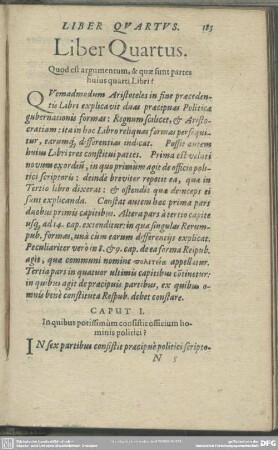 LIBER QVARTVS. 185
Liber Quartus.
Quod est argumentum, & quæ sunt partes
huius quarti Libri?
QVemadmodum Aristoteles in fine præceden-
tis Libri explicavit duas præcipuas Politicæ
gubernationis formas: Regnum scilicet, & Aristo-
cratiam: ita in hoc Libro reliquas formas persequi-
tur, earumq́; differentias indicat. Possit autem
huius Libri tres constitui partes. Prima est veluti
novum exordiũ, in quo primùm agit de officio politi-
ci scriptoris: deinde breviter repetit ea, quæ in
Tertio libro dixerat: & ostendit quæ deinceps ei
sint explicanda. Constat autem hoc prima pars
duobus primis capitibus. Altera pars à tertio capite
usq; ad 14. cap. extenditur: in quâ singulas Rerum-
pub. formas, unà cùm earum differentijs explicat.
Peculiariter verò in 8. & 9. cap. de ea forma Reipub.
agit, quæ communi nomine πολιτεία appellatur.
Tertia pars in quatuor ultimis capitibus cõtinetur:
in quibus agit de præcipuis partibus, ex quibus o-
mnis benè constituta Respub. debet constare.
CAPUT I.
In quibus potissimùm consistit officium ho-
minis politici?
IN sex partibus consistit præcipuè politici scripto-
N 5